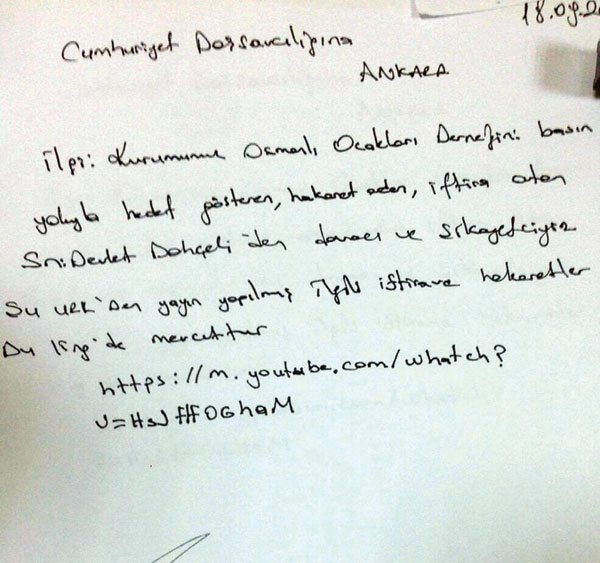 18.09.2
Cumhuriyet Başsavcılığına
ANKARA
İlgi: Kurumumuz Osmanlı Ocakları Derneğini basın
yoluyla hedef gösteren, hakaret eden, iftira atan
Sn: Devlet Bahçeli'den davacı ve şikayetçiyiz
Su URL'Den yayın yapılmış ilgili iftira ve hakaretler
Bu link'de mevcuttur
https://m.youtube.com/whatch?
v=HsJffOGhaM